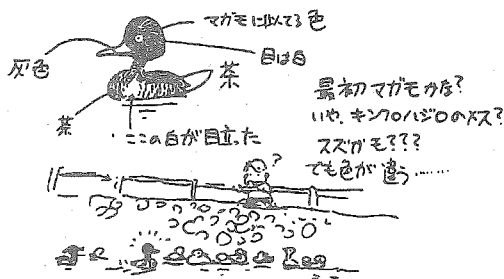 マガモに似てる色
目は白
灰色
茶
茶
ここの白が目立った
最初マガモかな?
いや、キンクロハジロのメス?
スズガモ???
でも色が違う……
?